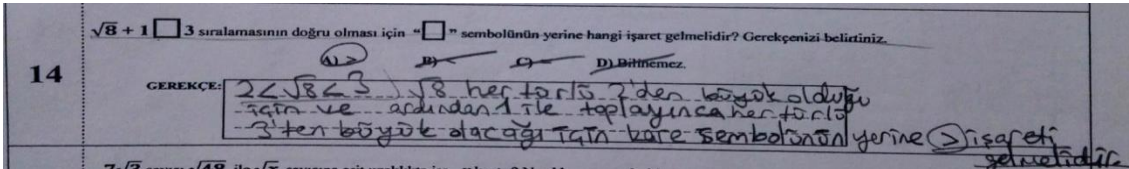 √8 + 1 □ 3 sıralamasının doğru olması için “□” sembolünün yerine hangi işaret gelmelidir? Gerekçenizi belirtiniz.
14
A) > B) < C) = D) Bilinemez.
GEREKÇE: 2<√8<3 √8 her türlü 2'den büyük olduğu
için ve ardından 1 ile toplayınca her türlü
3'ten büyük olacağı için kare sembolünün yerine > işareti
gelmelidir